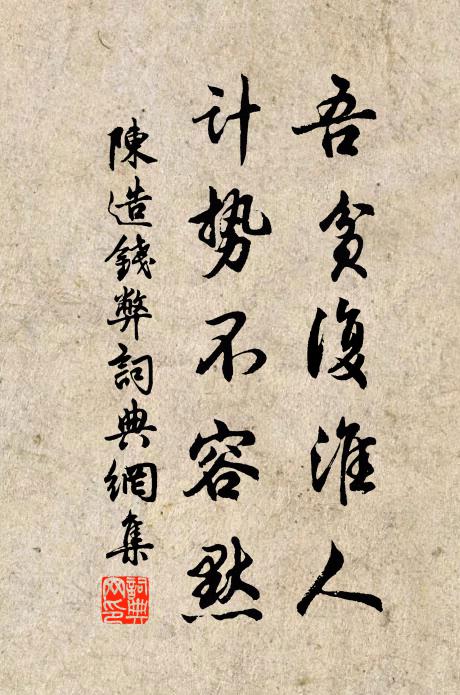 吾貧復淮人
计势不容默
陳造錢弊詞典網集
詞典网印